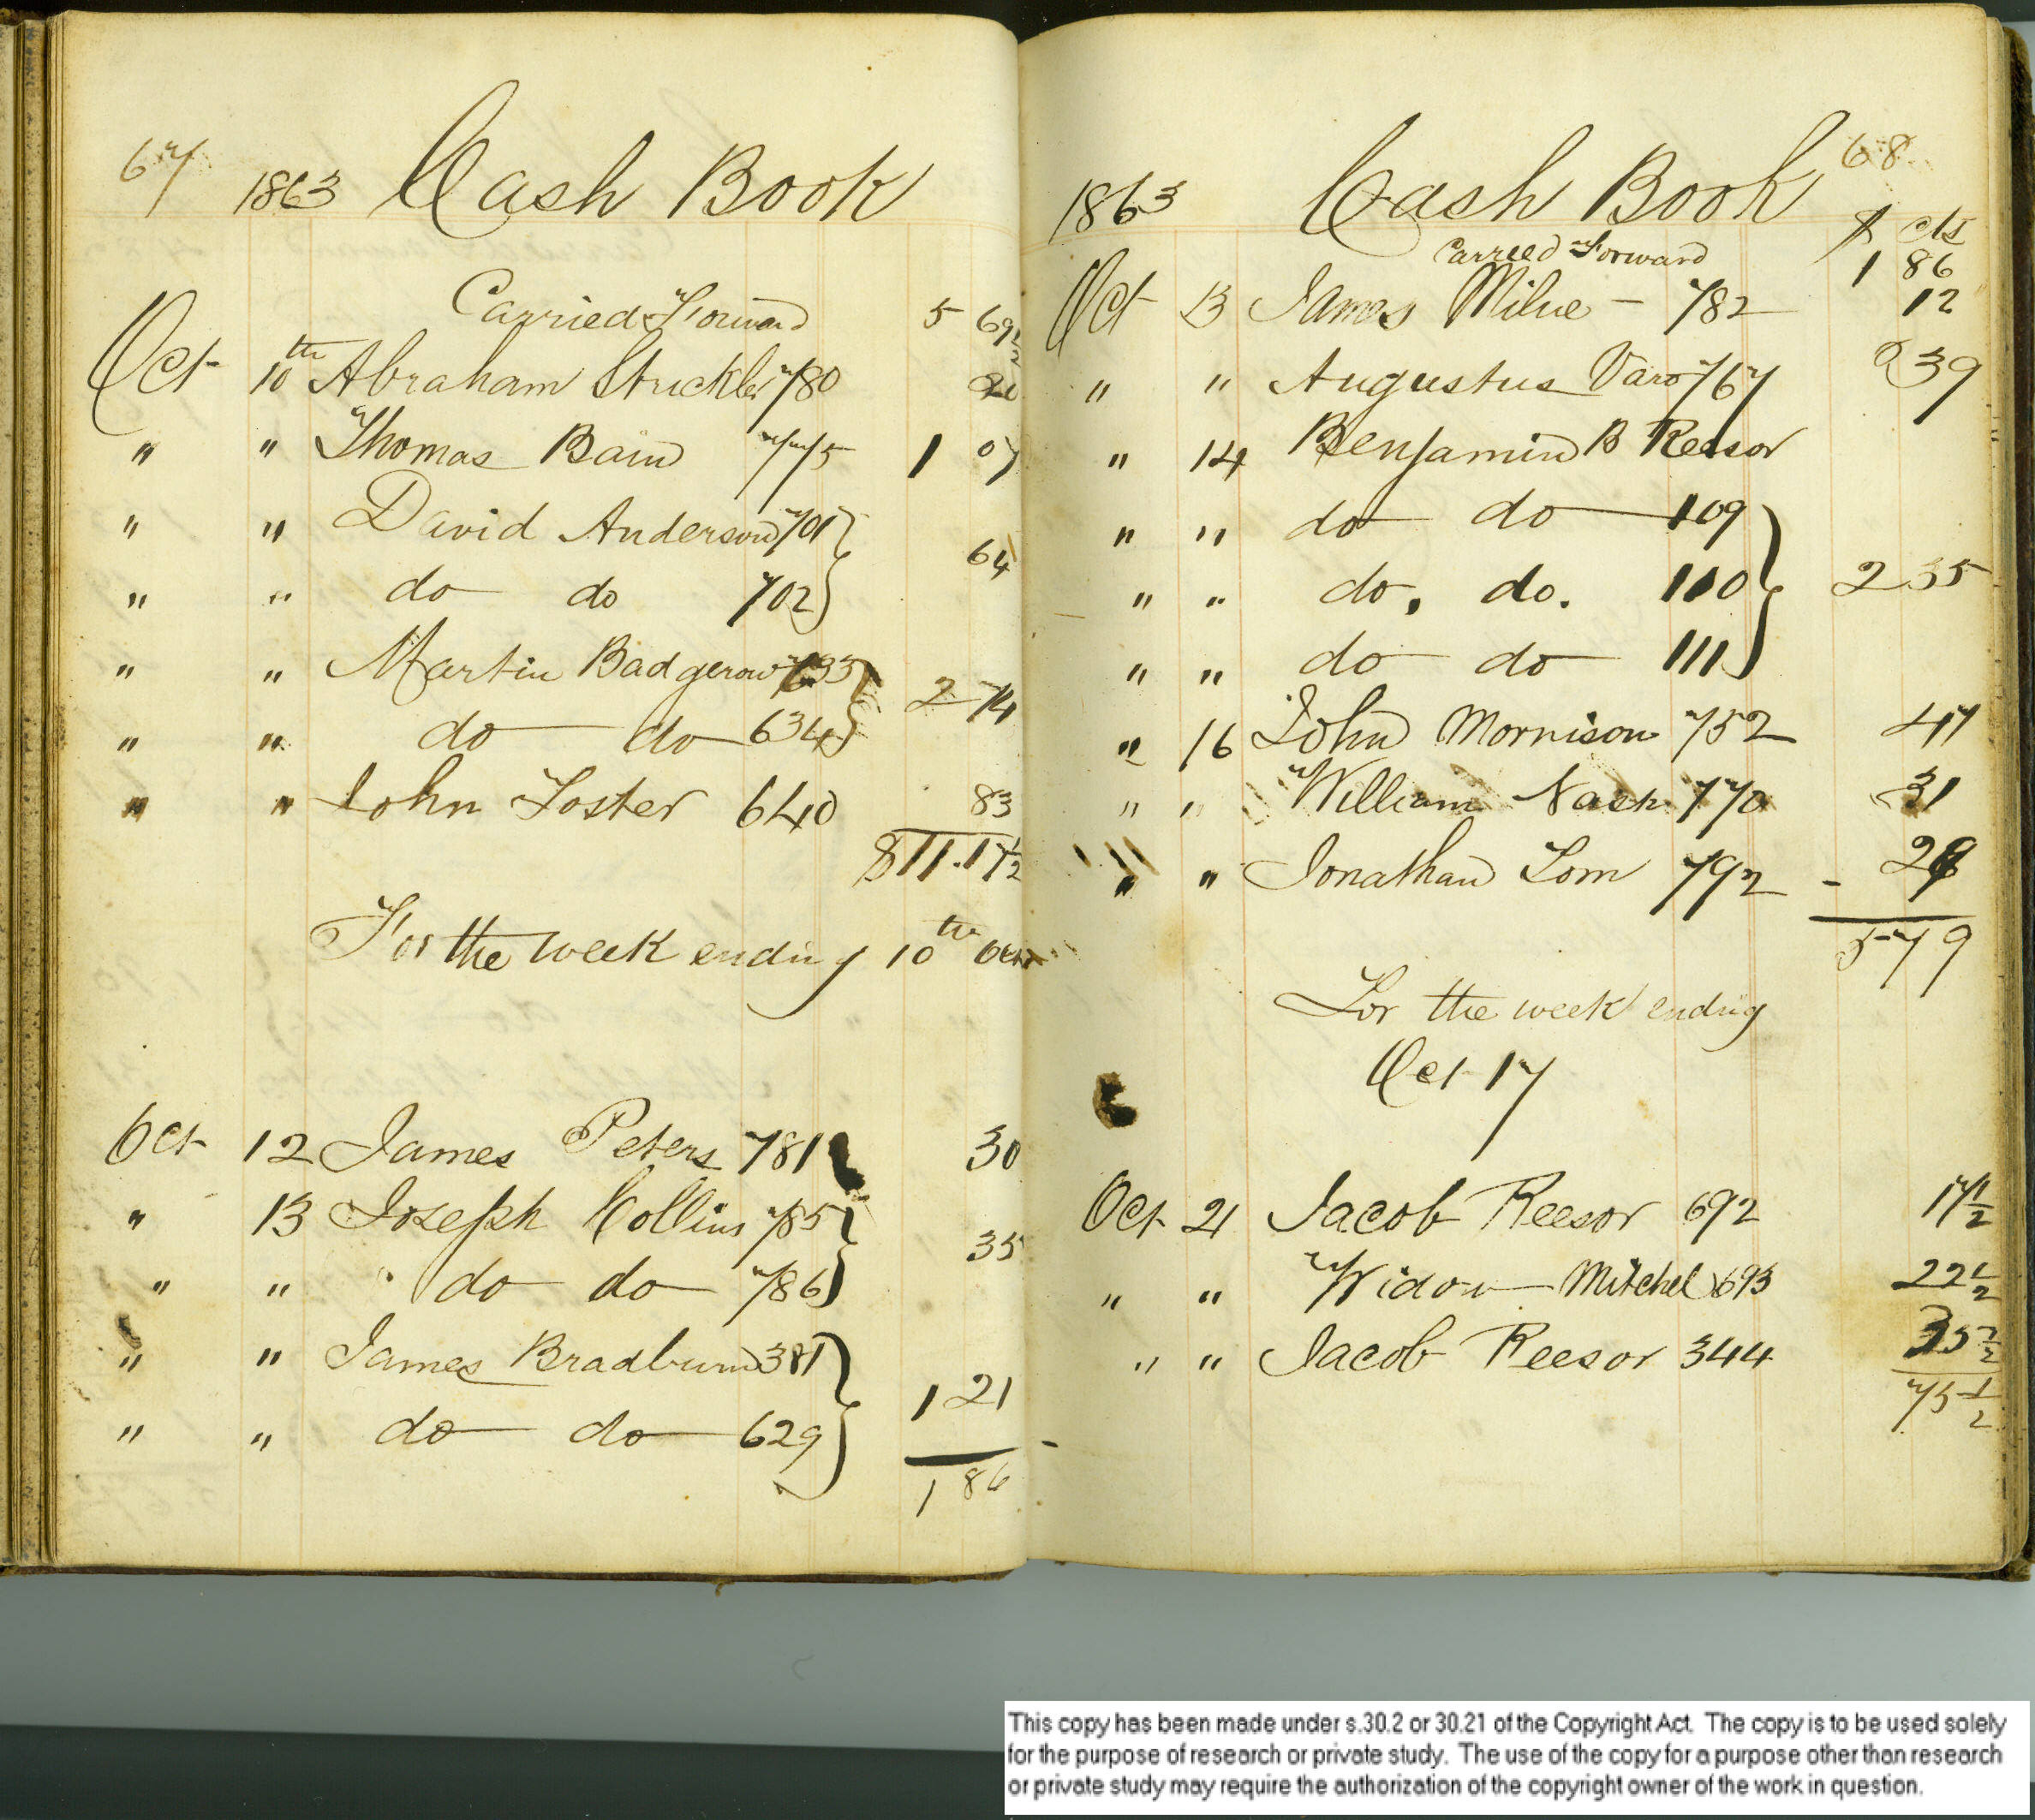 67 1863 Cash Book
Carried Forward 5 69½
Oct 10th Abraham Strickler 780 20
" " Thomas Bain 775 1 07
" " David Anderson 701 } 64
" " do do 702 }
" " Martin Badgerow 633 } 2 74
" " do do 634 }
" " John Foster 640 83
$11.17½
For the week ending 10th Oct
Oct 12 James Peters 781 30
" 13 Joseph Collins 785 } 35
" " do do 786 }
" " James Bradburn 381 } 1 21
" " do do 629 }
1 86
68
1863 Cash Book
$ cts
Carried Forward 1 86
Oct 13 James Milne – 782 12
" " Augustus Vars 767 39
" 14 Benjamin B Reesor
" " do do 109 }
" " do. do. 110 } 2 35
" " do do 111 }
" 16 John Morrison 752 47
" " William Nash 770 31
" " Jonathan Lom 792 - 29
5 79
For the week ending
Oct 17
Oct 21 Jacob Reesor 692 17½
" " Widow Mitchel 693 22½
" " Jacob Reesor 344 35½
75½
This copy has been made under s.30.2 or 30.21 of the Copyright Act. The copy is to be used solely
for the purpose of research or private study. The use of the copy for a purpose other than research
or private study may require the authorization of the copyright owner of the work in question.